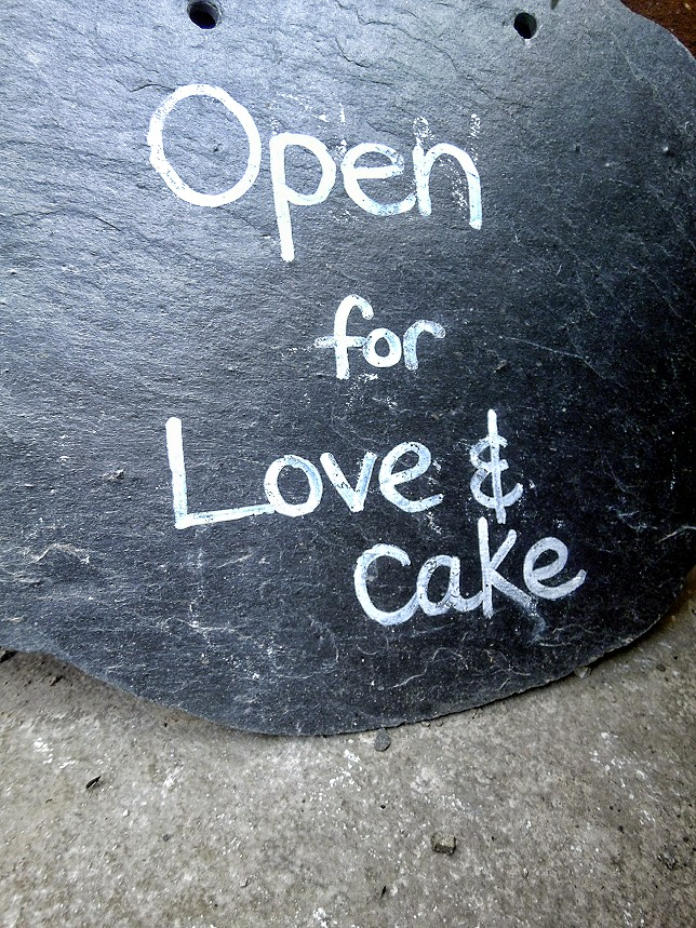 Open
for
Love &
cake